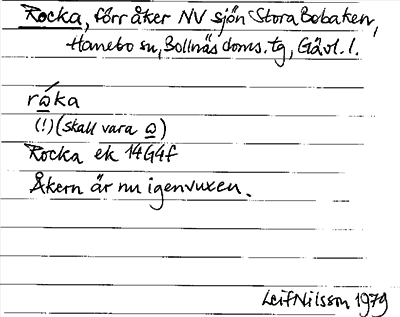 Rocka, förr åker NV sjön Stora Bobaken,
Hanebo sn, Bollnäs doms. tg, Gävl. l.
rώ̲ka
(!) (skall vara ω̲)
Rocka ek 14G4f
Åkern är nu igenvuxen.
Leif Nilsson 1979